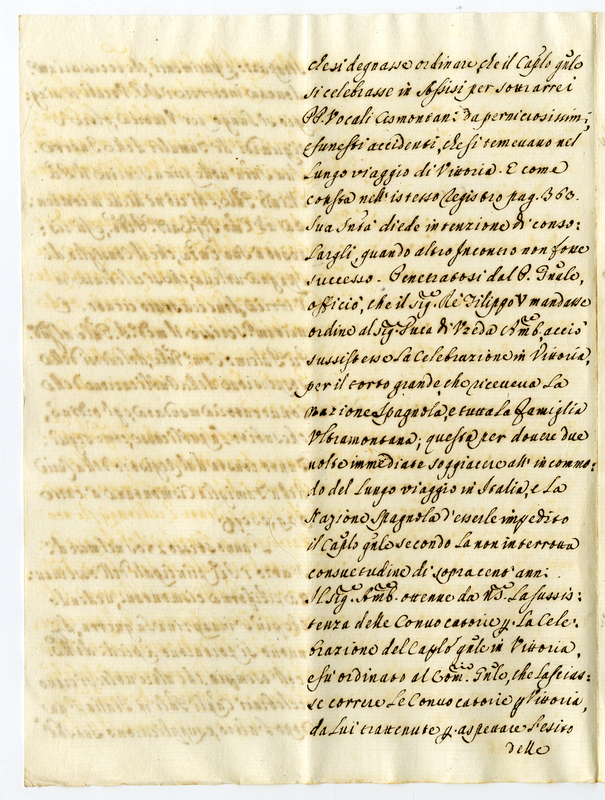 che si degnasse ordinare, che il Cap̃lo gñle
si celebrasse in Assisi per sottrarre i
PP. Vocali Cismontani da perniciosissimi,
e funesti accidenti, che si temevano nel
lungo viaggio di Vittoria. E come
consta nell' istesso Registro pag. 363.
Sua Sntà diede intenzione di conso:
largli, quando altro Incontro non fosse
successo. Penetratosi dal P. Gñle,
officiò, che il Sig. Rè Filippo V mandasse
ordine al Sig. Duca di Uzeda Amb. acciò
sussistesse la celebrazione in Vittoria,
per il torto grande, che riceveva la
nazione Spagnola, e tutta la Famiglia
Ultramontana; questa per dovere due
volte immediate soggiacere all' incommo:
do del lungo viaggio in Italia, e la
Nazione Spagnola d'esserle impedito
il Cap̃lo gñle secondo la non interrotta
consuetudine di sopra cent' anni.
Il Sig. Amb. ottenne da N.S. la sussis:
tenza delle Convocatorie p. la Cele:
brazione del Cap̃lo gñle in Vittoria,
e fù ordinato al Com. Gñle, che lascias:
se correre le Convocatorie p Vittoria,
da lui trattenute p. aspettare l'esito
delle